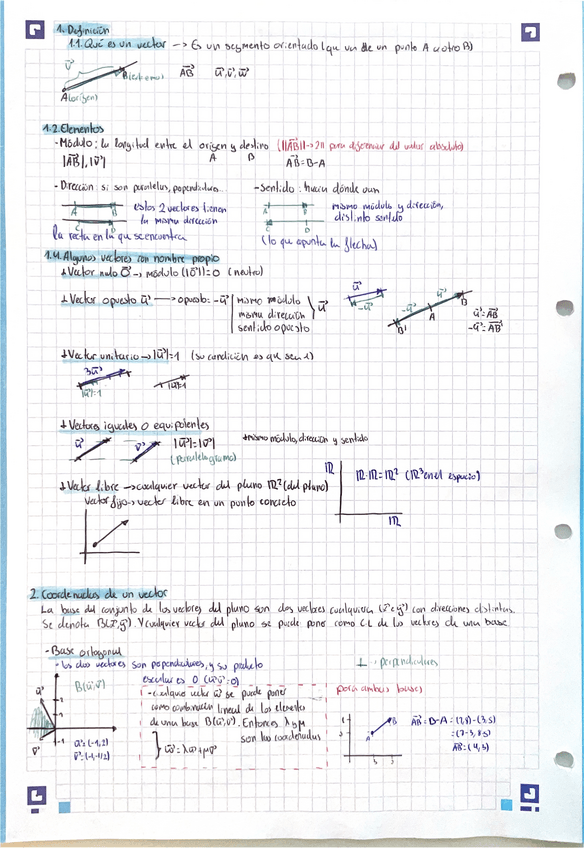 1. Definición
1.1. Qué es un vector -> Es un segmento orientado (que va de un punto A a otro B)
v⃗ B(extremo) AB⃗ u⃗, v⃗, w⃗
A(origen)
1.2. Elementos
- Módulo: la longitud entre el origen y destino (||AB⃗|| -> 2|| para diferenciar del valor absoluto)
A B
|AB⃗|, |v⃗| AB⃗ = B-A
- Dirección: si son paralelas, perpendiculares... - Sentido: hacia dónde van
A B estos 2 vectores tienen A B mismo módulo y dirección,
la misma dirección distinto sentido
C D
la recta en la que se encuentra (lo que apunta la flecha)
1.4. Algunos vectores con nombre propio
Vector nulo 0⃗ -> módulo (|0⃗|) = 0 (neutro)
Vector opuesto u⃗ -> opuesto: -u⃗ | mismo módulo
misma dirección } u⃗
sentido opuesto
u⃗ -u⃗
-u⃗ u⃗ B
B' A u⃗ = AB⃗
-u⃗ = AB'⃗
Vector unitario -> |u⃗| = 1 (su condición es que sea 1)
3u⃗
|u⃗|=1 |u⃗|=1
Vectores iguales o equipolentes
u⃗ v⃗ |u⃗| = |v⃗| mismo módulo, dirección y sentido
(paralelogramo)
Vector libre -> cualquier vector del plano ℝ² (del plano)
vector fijo -> vector libre en un punto concreto
ℝ ℝ·ℝ=ℝ² (ℝ³ en el espacio)
ℝ
2. Coordenadas de un vector
La base del conjunto de los vectores del plano son dos vectores cualquiera (x⃗ e y⃗) con direcciones distintas.
Se denota B(x⃗, y⃗). Y cualquier vector del plano se puede poner como CL de los vectores de una base
- Base ortogonal
los dos vectores son perpendiculares, y su producto
escalar es 0 (u⃗·v⃗=0)
B(u⃗, v⃗)
u⃗
v⃗
u⃗ = (-1, 2)
v⃗ = (-1, -1/2)
- cualquier vector w⃗ se puede poner
como combinación lineal de los elementos
de una base B(u⃗, v⃗). Entonces λ y μ
son las coordenadas
w⃗ = λu⃗+μv⃗
⊥ -> perpendiculares
para ambas bases
A B AB⃗ = B-A = (7, 8) - (3, 5)
= (7-3, 8-5)
AB⃗ = (4, 3)